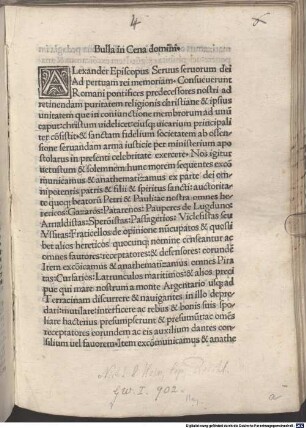 4
Bulla in Cena domini.
ALexander Episcopus Seruus seruorum dei
Ad perpetuam rei memoriam. Consueuerunt
Romani pontifices predecessores nostri ad
retinendam puritatem religionis christiane & ipsius
unitatem que in coniunctione membrorum ad unū
caput christum uidelicet eiusq; uicarium principali
ter cōsistit & sanctam fidelium societatem ab offen
sione seruandam arma iusticie per ministerium apo
stolatus in presenti celebritate exercere. Nos igitur
uetustum & solemnem hunc morem sequentes exco
municamus & anathematizamus ex parte dei om
nipotentis patris & filii & spiritus sancti: auctorita
te quoq; beatorū Petri & Pauli ac nostra omnes he
reticos: Gazaros: Patarenos: Pauperes de Lugduno:
Arnaldistas: Speronistas: Passagerios: Viclefistas seu
Vssitas: Fraticellos de opinione nūcupatos & quosli
bet alios hereticos quocunq; nomine censeantur ac
omnes fautores: receptatores: & defensores eorundē
Item excōicamus & anathematizamus omnes Pira
tas: Cursarios: Larrunculos maritimos: & alios preci
pue qui mare nostrum a monte Argentario usq; ad
Terracinam discurrere & nauigantes in illo depre
dari: mutilare: interficere ac rebus & bonis suis spo
liare hactenus presumpserunt & presumūt: ac omēs
receptatores eorundem ac eis auxilium dantes con
silium uel fauorem. Item excōmunicamus & anathe
GW. I. 902.
a